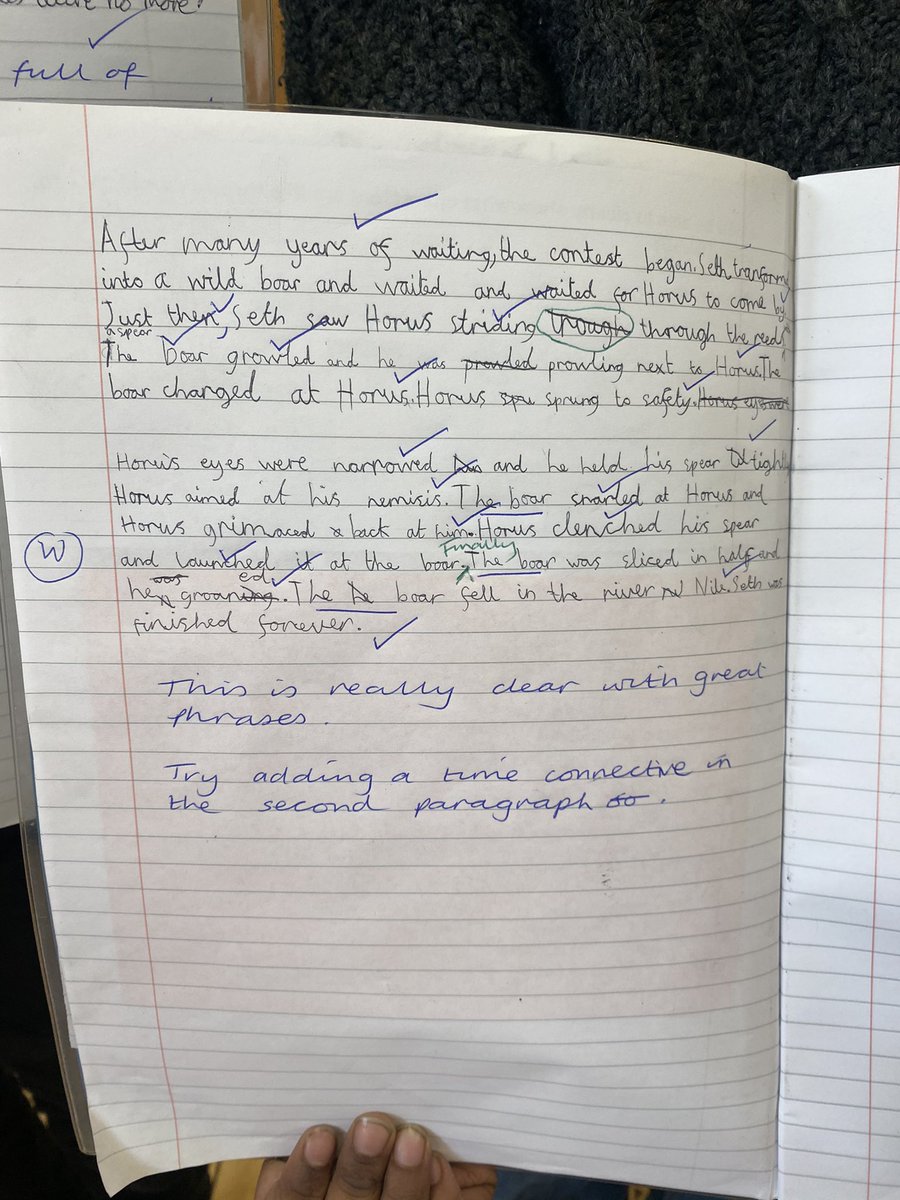 full of
After many years of waiting, the contest began. Seth transformed
into a wild boar and waited and waited for Horus to come by.
Just then, Seth saw Horus striding trough through the reeds
a spear
The boar growled and he was prowled prowling next to Horus. The
boar charged at Horus. Horus spu sprung to safety. Horus eyes were
Horus eyes were narrowed and he held his spear tightly
Horus aimed at his nemisis. The boar snarled at Horus and
Horus grimaced back at him. Horus clenched his spear
and launched it at the boar. Finally The boar was sliced in half and
W
he was groaning ed. The he boar fell in the river Nile. Seth was
finished forever.
This is really clear with great
phrases.
Try adding a time connective in
the second paragraph too.